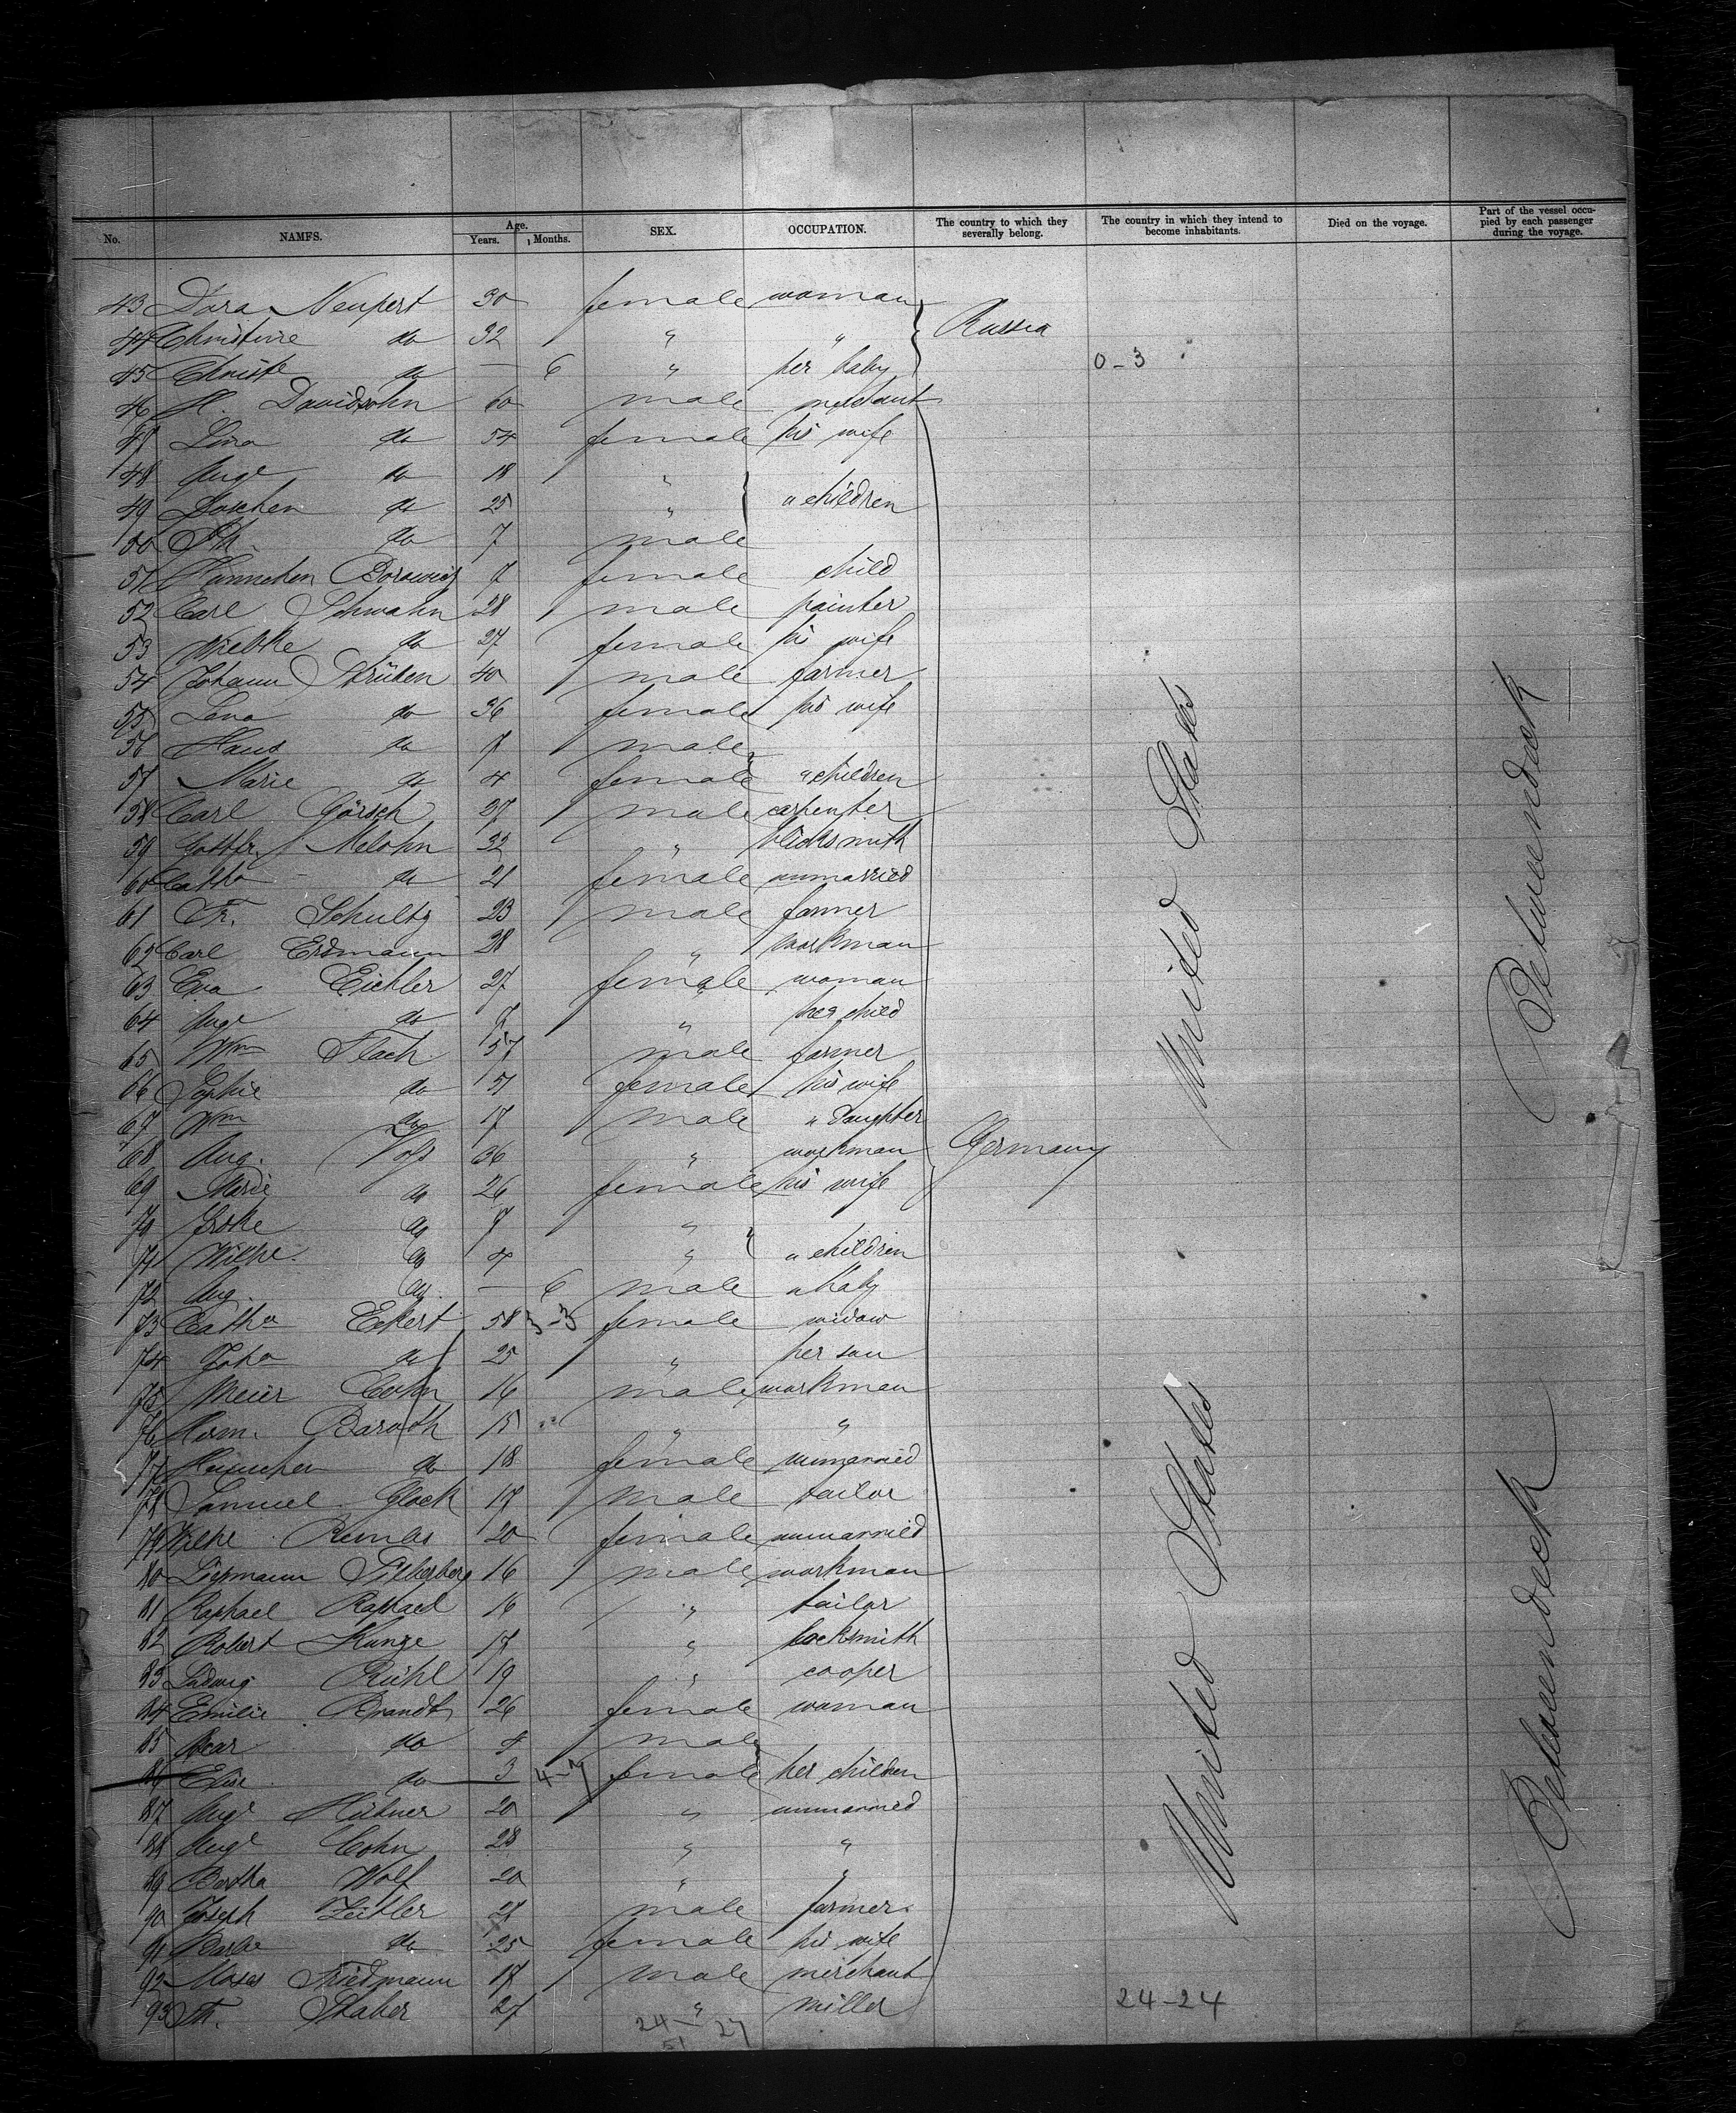 No. NAMES. Age. Years. Months. SEX. OCCUPATION. The country to which they severally belong. The country in which they intend to become inhabitants. Died on the voyage. Part of the vessel occupied by each passenger during the voyage.
43 Dora Neupert 30 female woman
44 Christine do 32 " " Russia
45 Christe do — 6 " her baby 0-3
46 H. Davidsohn 60 male merchant
47 Lina do 54 female his wife
48 Auge do 18 "
49 Doschen do 25 " " children
50 do 7 male
51 Hannchen 7 female child
52 Carl Schwahn 28 male painter
53 Wiebke do 27 female his wife
54 Johann Strüben 40 male farmer
55 Lena do 36 female his wife
56 Hans do 7 male
57 Marie do 4 female " children
58 Carl Görsch 27 male carpenter
59 Gottfr. Melohn 32 " blacksmith
60 Catha do 21 female unmarried
61 Fr. Schultz 23 male farmer
62 Carl Erdmann 28 " workman
63 Eva Eichler 27 female woman
64 Auge do " her child
65 Wm Flach 57 male farmer
66 Sophie do 51 female his wife
67 Wm do 17 male " daughter
68 Aug. Voss 36 " workman Germany
69 Marie do 26 female his wife
70 do 7 "
71 Wilhe. do 4 " " children
72 Aug. do — 6 male " baby
73 Catha Eckert 58 3-3 female widow
74 Joha do 25 " her son
75 Meier Cohn 16 male workman
76 Herm. Baruth 15 " "
77 do 18 female unmarried
78 Samuel Glock 17 male tailor
79 Wilhe 20 female unmarried
80 Silberberg 16 male workman
81 Raphael Raphael 16 " tailor
82 Robert Kunze 17 " locksmith
83 Ludwig Rühl 19 " cooper
84 Emilie Brandt 26 female woman
85 Oscar do male
86 Elise do 3 female her children
87 Auge Hübner 20 " unmarried
88 Auge Cohn 28 " "
89 Bertha Wolf 20 " "
90 Joseph Zeitler 27 male farmer
91 Barbe do 25 female his wife
92 Moses Friedmann 17 male merchant
93 Staber 27 " miller
24-24
24- 27
51
United States
Betweendeck
United States
Betweendeck